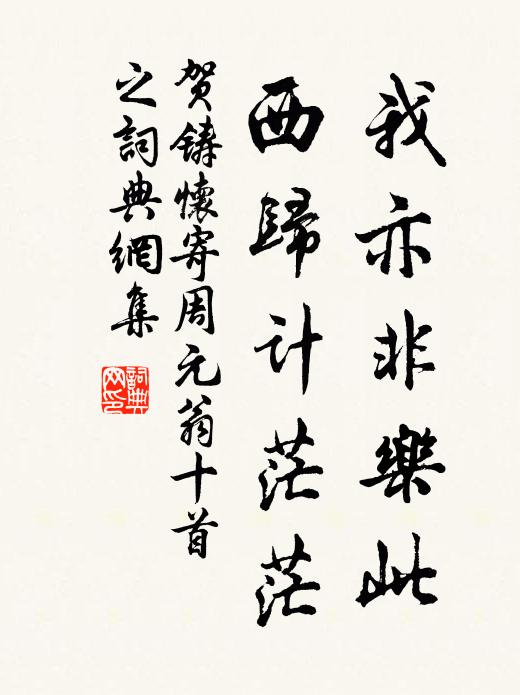 我亦非樂此
西歸計茫茫
贺鑄懷寄周元翁十首
之詞典網集
詞典网印